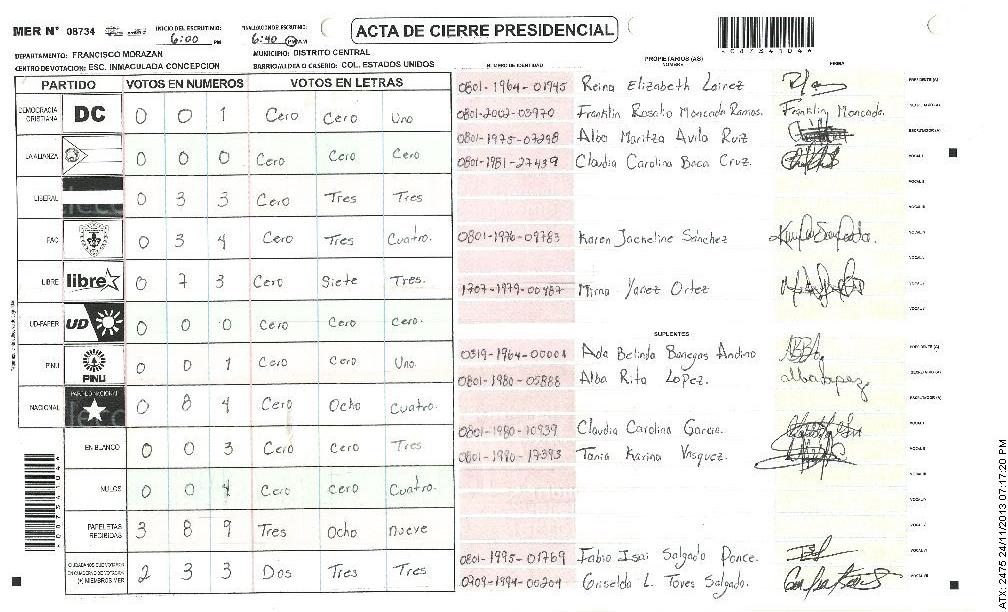 MER N° 08734 INICIO DEL ESCRUTINIO: 6:00 PM FINALIZACION DE ESCRUTINIO: 6:40 PM AM ACTA DE CIERRE PRESIDENCIAL
DEPARTAMENTO: FRANCISCO MORAZAN MUNICIPIO: DISTRITO CENTRAL
CENTRO DE VOTACION: ESC. INMACULADA CONCEPCION BARRIO/ALDEA O CASERIO: COL. ESTADOS UNIDOS
NUMERO DE IDENTIDAD PROPIETARIOS (AS) NOMBRE FIRMA
PARTIDO VOTOS EN NUMEROS VOTOS EN LETRAS
DEMOCRACIA CRISTIANA DC 0 0 1 Cero Cero Uno
LA ALIANZA 0 0 0 Cero Cero Cero
LIBERAL 0 3 3 Cero Tres Tres
PAC 0 3 4 Cero Tres Cuatro.
LIBRE libre 0 7 3 Cero Siete Tres.
UD-FAPER UD 0 0 0 Cero Cero Cero.
PINU PINU 0 0 1 Cero Cero Uno.
NACIONAL PARTIDO NACIONAL 0 8 4 Cero Ocho Cuatro.
EN BLANCO 0 0 3 Cero Cero Tres
NULOS 0 0 4 Cero Cero Cuatro.
PAPELETAS RECIBIDAS 3 8 9 Tres Ocho nueve
CIUDADANOS QUE VOTARON EN CUADERNO DE VOTACION (+) MIEMBROS MER 2 3 3 Dos Tres Tres
0801-1964-01945 Reina Elizabeth Lainez PRESIDENTE (A)
0801-2002-03970 Franklin Rosalio Moncada Ramos. Franklin Moncada. SECRETARIO (A)
0801-1975-07298 Alba Maritza Avila Ruiz ESCRUTADOR (A)
0801-1981-27439 Claudia Carolina Baca Cruz. VOCAL I
0801-1976-09783 Karen Jackeline Sánchez
1707-1979-00487 Mirna Yanez Ortez
SUPLENTES
0319-1964-00001 Ada Belinda Banegas Andino PRESIDENTE (A)
0801-1980-05888 Alba Rita Lopez. alba lopez SECRETARIO (A)
ESCRUTADOR (A)
0801-1980-10939 Claudia Carolina Garcia.
0801-1980-17393 Tania Karina Vasquez.
0801-1995-01769 Fabio Isai Salgado Ponce.
0909-1994-00204 Griselda L. Toves Salgado.
ATX: 2475 24/11/2013 07:17:20 PM